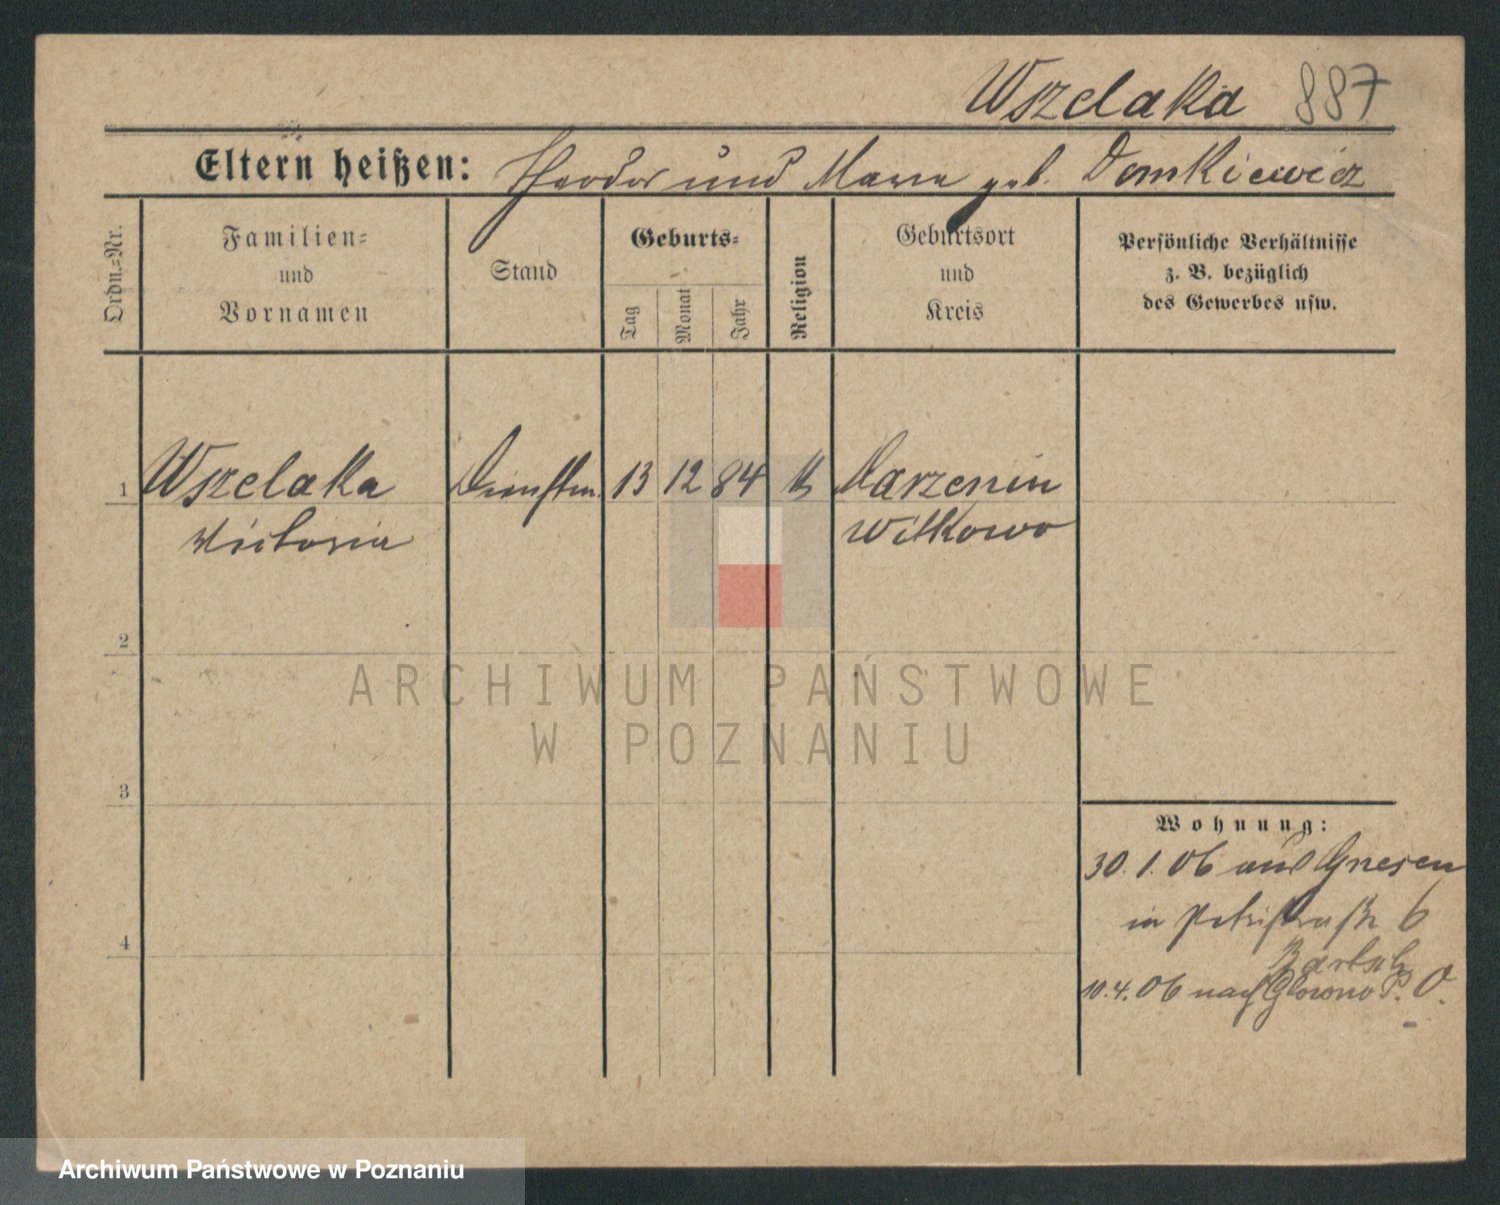 Wszelaka 887
Eltern heißen: Theodor und Maria geb. Domkiewicz
Ordn.=Nr.
Familien=
und
Vornamen
Stand
Geburts=
Tag
Monat
Jahr
Religion
Geburtsort
und
Kreis
Persönliche Verhältnisse
z. B. bezüglich
des Gewerbes usw.
1 Wszelaka Dienstm. 13 12 84 k Marzenin
Victoria Witkowo
2
3
4
Wohnung:
30. 1. 06 aus Gnesen
in Petristraße 6
Bartsch
10. 4. 06 nach Glowno P. O.
ARCHIWUM PAŃSTWOWE
W POZNANIU
Archiwum Państwowe w Poznaniu